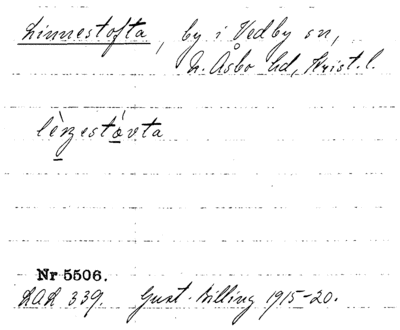 Linnestofta, by i Vedby sn,
N. Åsbo hd, Krist. l.
lèn̦estóvta
Nr 5506.
LAL 339. Gust. Billing 1915-20.